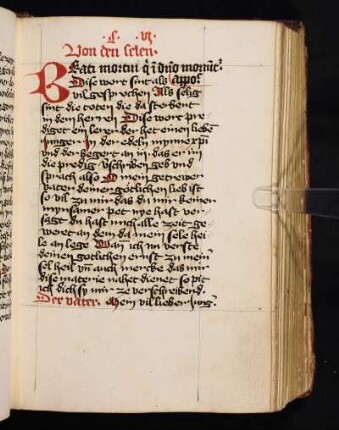 · f · vj ·
Von den selen ·
Beati mortui q̄ i dn̄o moriūt̄
Dise wort sint als
vil gesprochen Als selig
sint die toten die da sterbent
in dem herren Dise wort pre
diget ein lerer der het einen liebē
junger in der edeln myn xpī
vnd der begert an in das er im
die predig v̄schriben geb vnd
sprach also O mein getrewer
vater deiner götlichen lieb ist
so vil zu mir das du mir keiner
myn samer pet nye hast ver
sagt du hast mich alle zeit ge
weret an den da mein sele hei
le an lege Wan ich im verste
deinen götlichen ernst zu mein̄
sel heil vn̄ auch mercke das mir
dise materie nahet dienet so pit
ich dich sy mir ze verschreibend
Der vater · Mein vil lieber junḡ